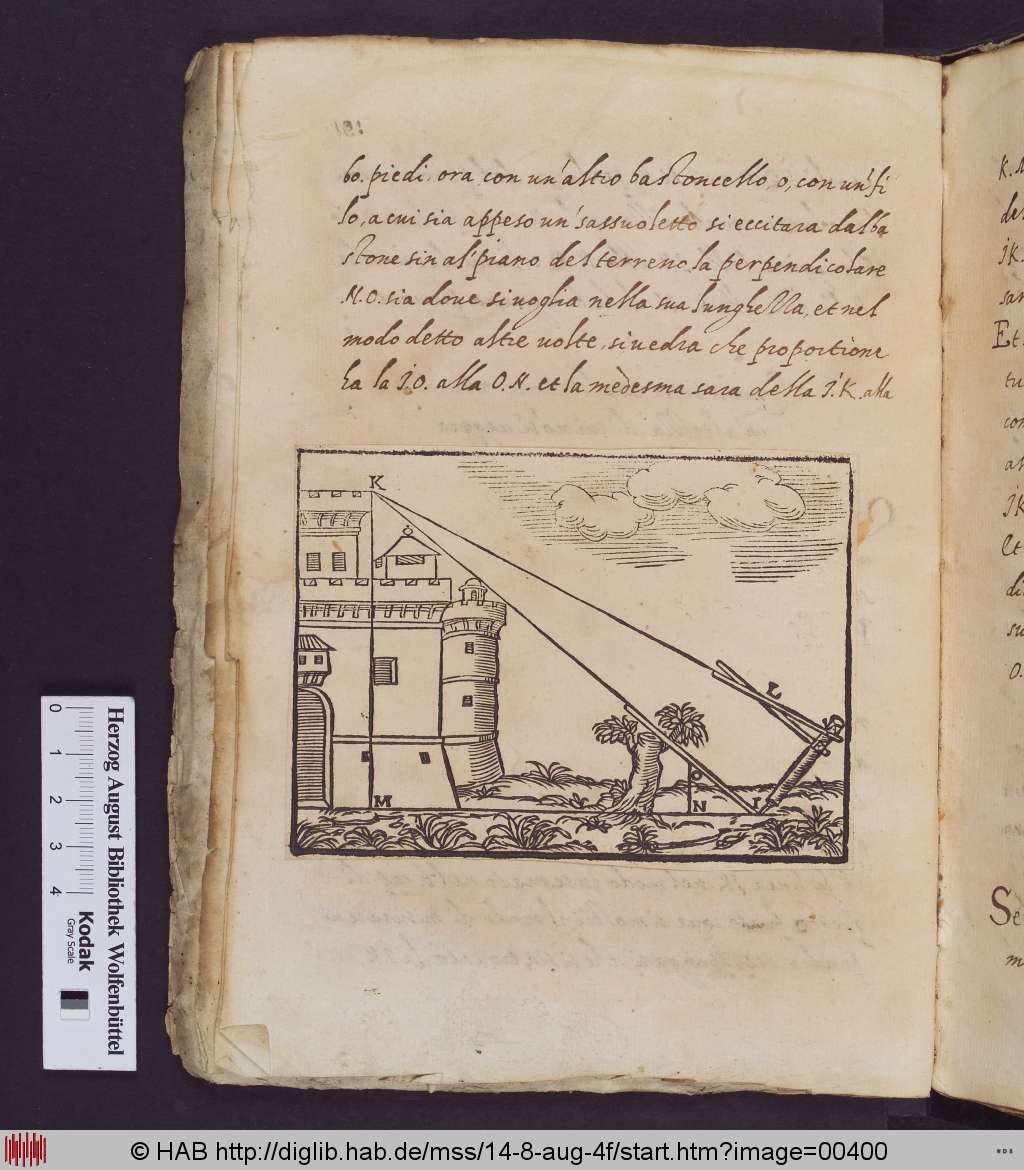 60. piedi, ora con un'altro bastoncello, o, con un'fi
lo, a cui sia appeso un'sassuoletto si eccitara dal ba
stone sin al'piano del terreno la perpendicolare
N.O. sia dove si uoglia nella sua lunghezza, et nel
modo detto altre uolte, si uedra che proportione
ha la I.O. alla O.N. et la medesma sara della I.K. alla
K
L
O
M
N
I
K.
IK.
sar
Et.
tu
con
IK
et
di
su
O.
Se
m
0
1
2
3
4
Herzog August Bibliothek Wolfenbüttel
Kodak
Gray Scale
© HAB http://diglib.hab.de/mss/14-8-aug-4f/start.htm?image=00400